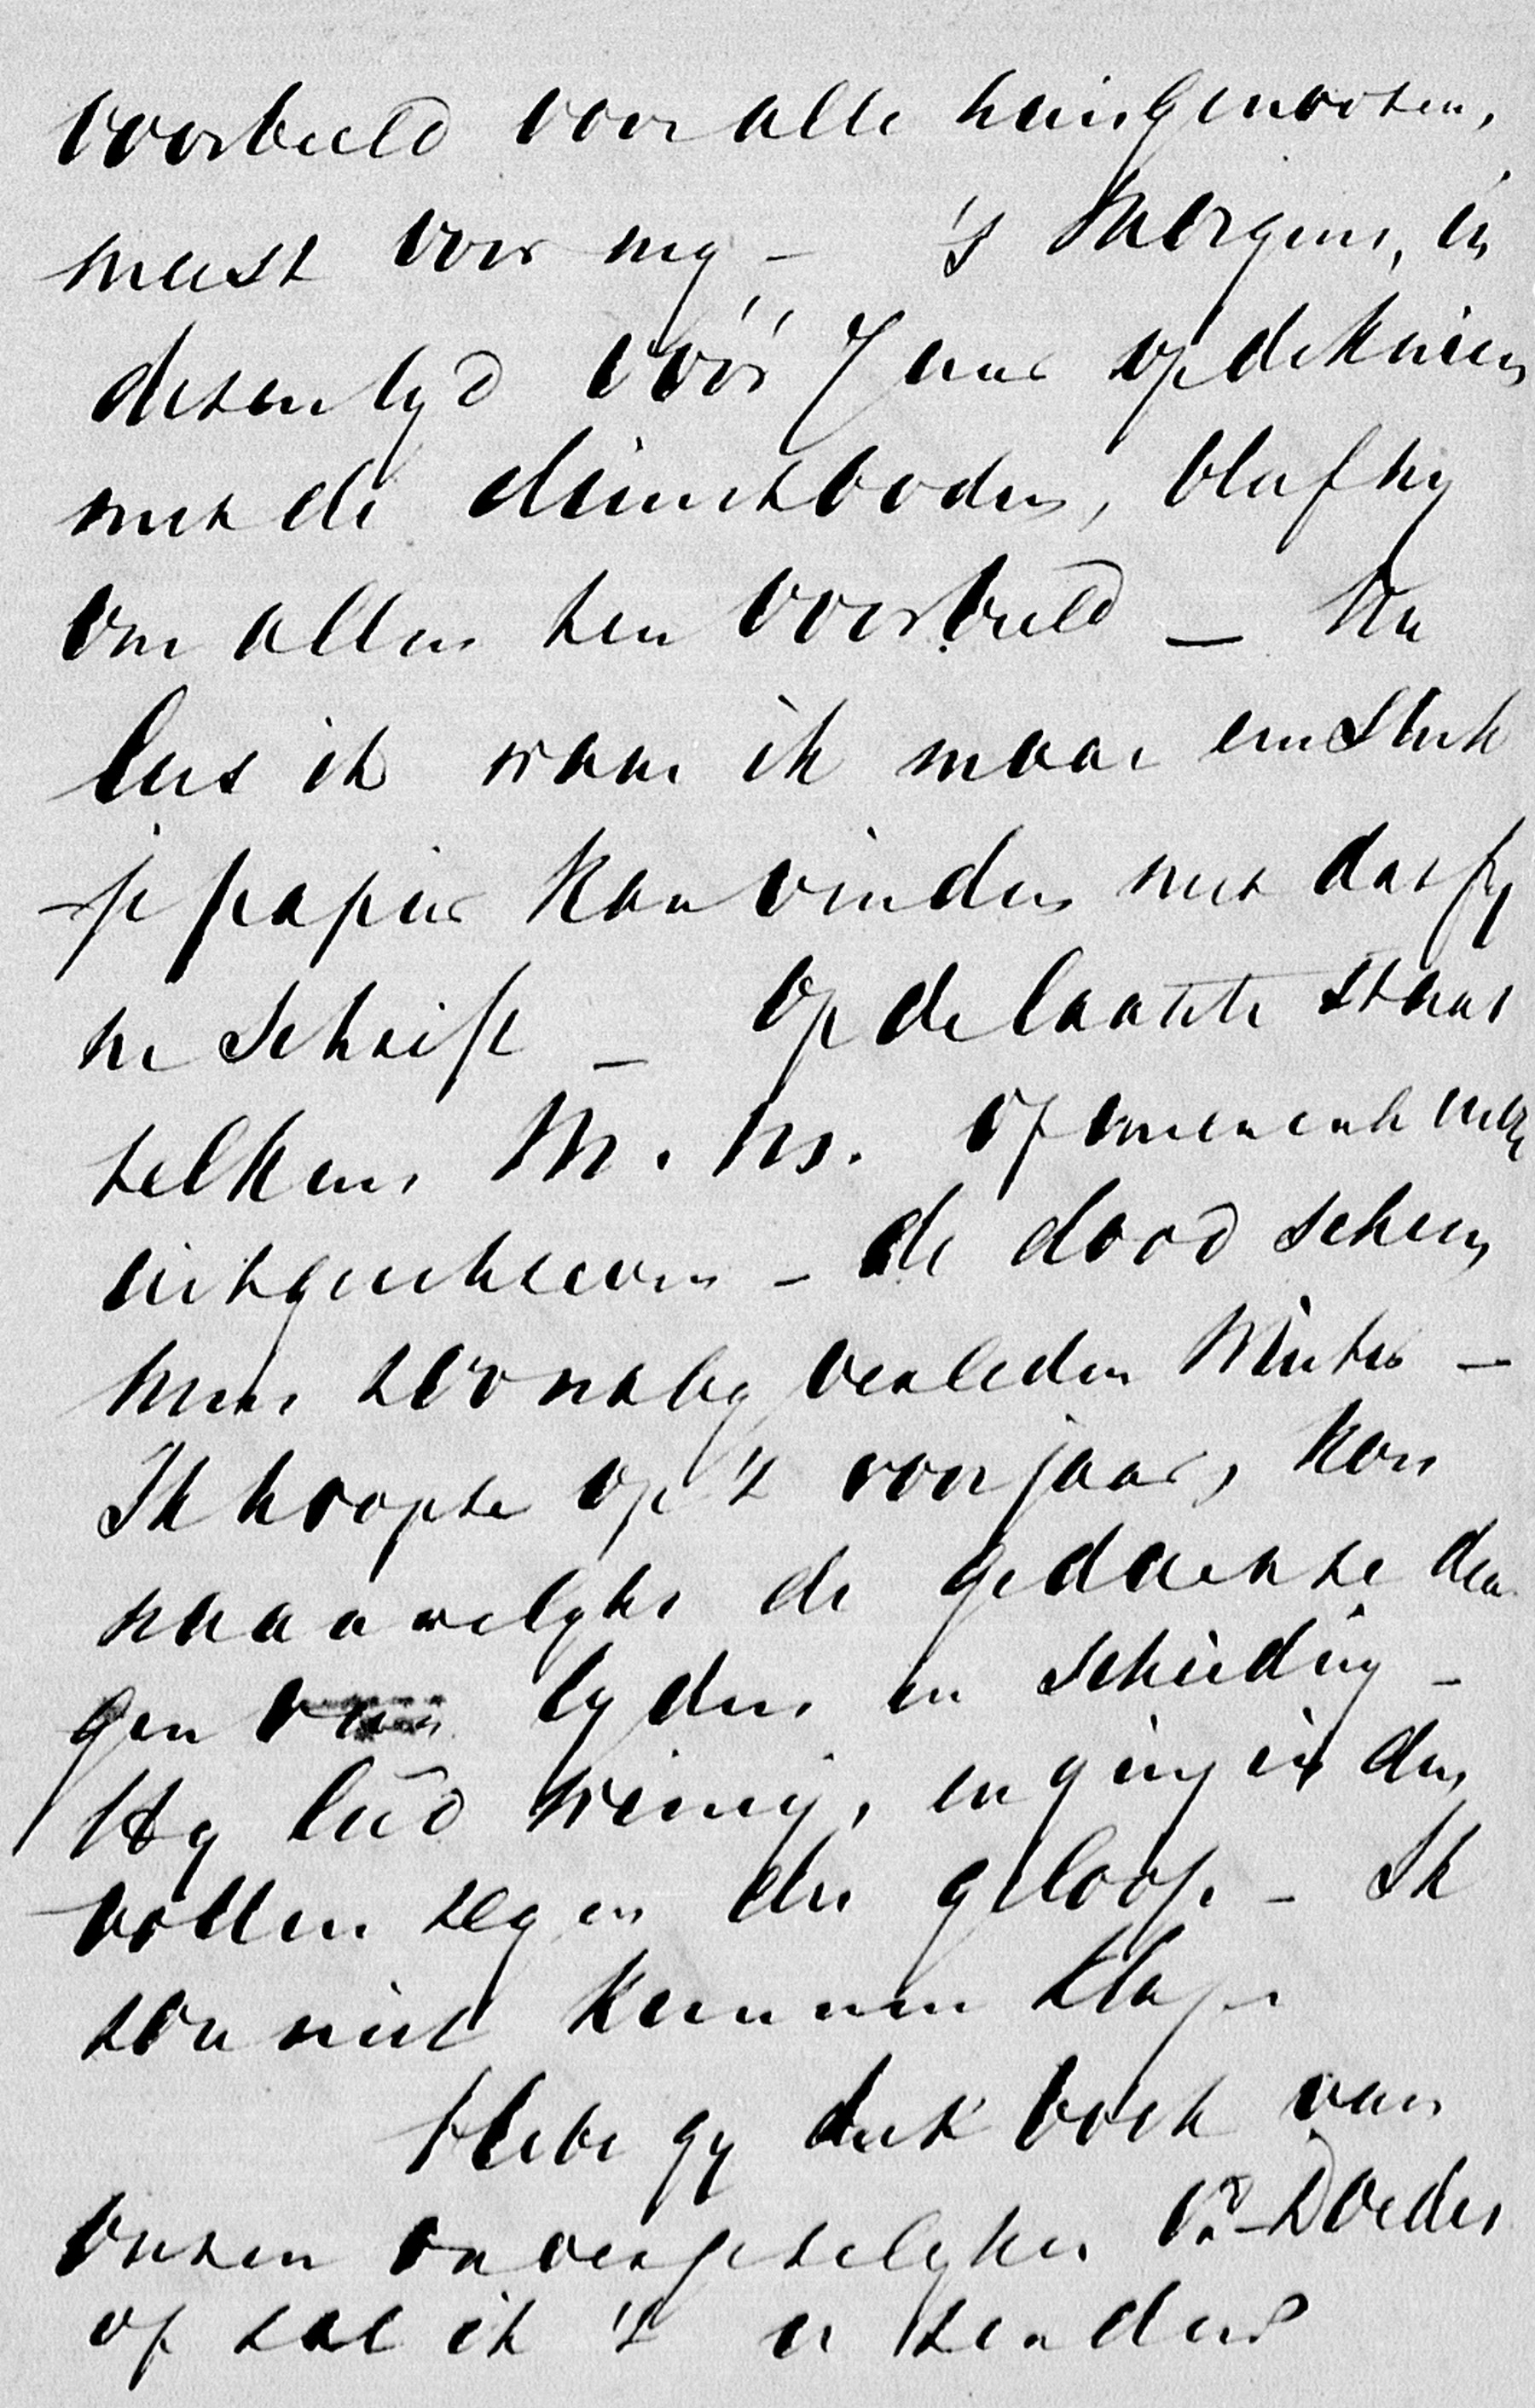 voorbeeld voor alle huisgenooten,
meest voor my – 's Morgens, in
dezen tyd vóór 7 uur op de knieen
met de dienstboden, bleef hy
ons allen ten voorbeeld – Nu
lees ik waar ik maar een stuk
je papier kan vinden met dat fy
ne Schrift – Op de laatste staat
telkens M. N. of
uitgeschreven – de dood scheen
hem zoo naby verleden Winter –
Ik hoopte op 't voorjaar, kon
naauwelyks de gedachte dra
gen van lyden en scheiding –
Hy leed weinig, en ging in den
vollen zegen des geloofs – Ik
zou niet kunnen klagen
Hebt gy het boek van
onzen onvergetelyken v. Doedes
of zal ik 't u zenden?